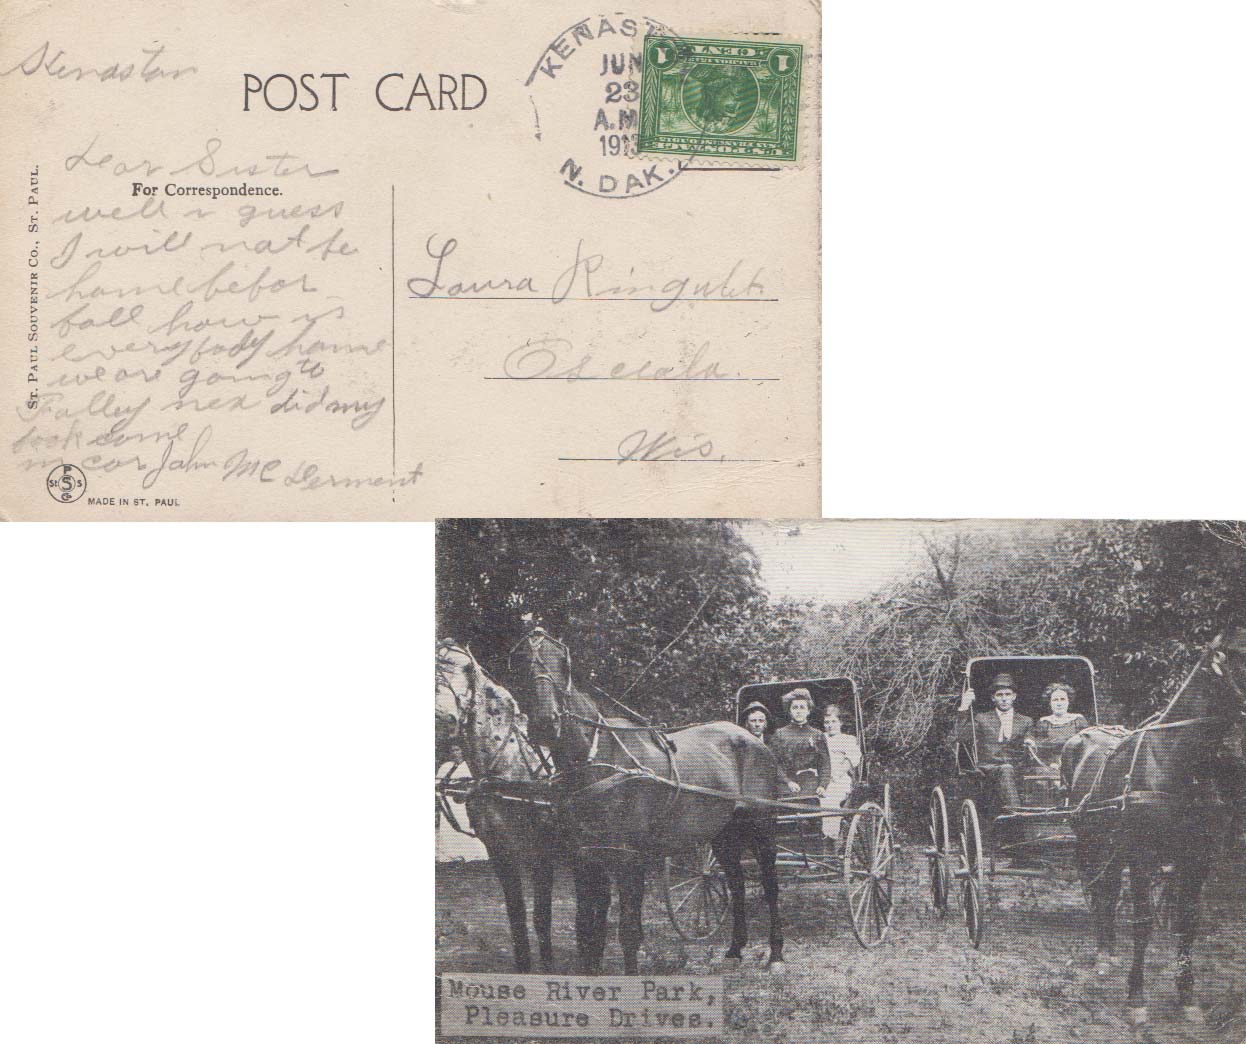 Kenastan
POST CARD
KENAST
JUN
23
A.M.
1913
N. DAK.
1 CENT 1
U.S. POSTAGE
Dear Sister
For Correspondence.
well i guess
I will not be
home befor
fall how is
everybody home
we are going to
Falley nex did my
book come
John Mc Derment
Laura Ringulet
Osceola.
Wis.
ST. PAUL SOUVENIR CO., ST. PAUL.
MADE IN ST. PAUL
Mouse River Park,
Pleasure Drives.